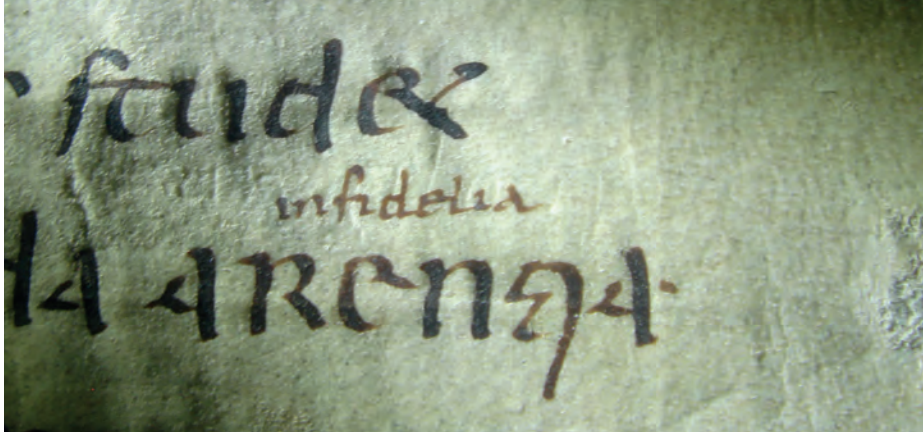 stud&
infidelia
arenga